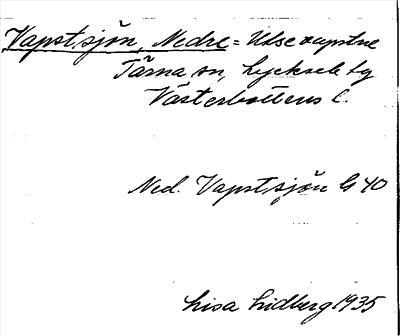 Vapstsjön, Nedre = Utse vapstne
Tärna sn, Lycksele lg
Västerbottens l.
Ned. Vapstsjön G 40
Lisa Lidberg 1935